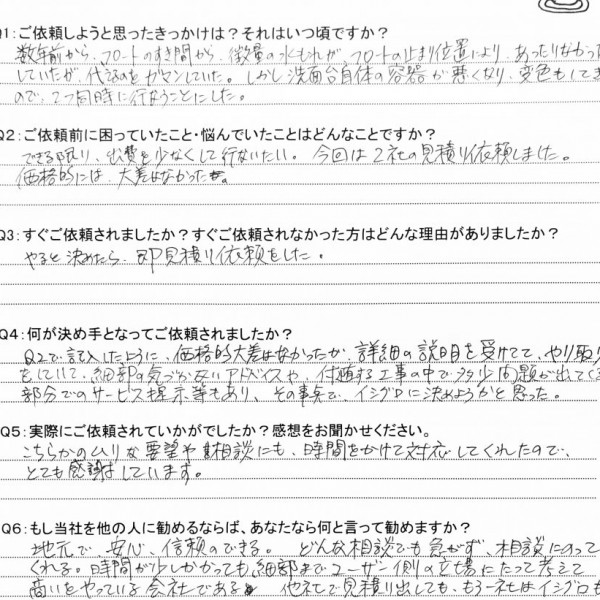 Q1:ご依頼しようと思ったきっかけは？それはいつ頃ですか？
数年前から、フロートのすき間から、微量の水もれが、フロートの止まり位置により、あったりなかったり
していたが、だましだましガマンしていた。しかし洗面台自体の容器が悪くなり、変色もしてき
ので、2つ同時に行なうことにした。
Q2:ご依頼前に困っていたこと・悩んでいたことはどんなことですか？
できる限り、出費を少なくして行ないたい。今回は2社の見積り依頼しました。
価格的には、大差はなかった。
Q3:すぐご依頼されましたか？すぐご依頼されなかった方はどんな理由がありましたか？
やると決めたら、即見積り依頼をした。
Q4:何が決め手となってご依頼されましたか？
Q2で記入したように、価格的大差はなかったが、詳細の説明を受けてて、やり取り
をしていて、細部の気づかないアドバイスや、付随する工事の中で多少問題が出てくる
部分でのサービス提示等もあり、その事で、イシグロに決めようかと思った。
Q5:実際にご依頼されていかがでしたか？感想をお聞かせください。
こちらからのムリな要望や相談にも、時間をかけて対応してくれたので、
とても感謝しています。
Q6:もし当社を他の人に勧めるならば、あなたなら何と言って勧めますか？
地元で、安心、信頼のできる。どんな相談でも急がず、相談にのって
くれる。時間が少しかかっても細部までユーザー側の立場にたって考えて
商いをやっている会社である。他社で見積り出しても、もう一社はイシグロも